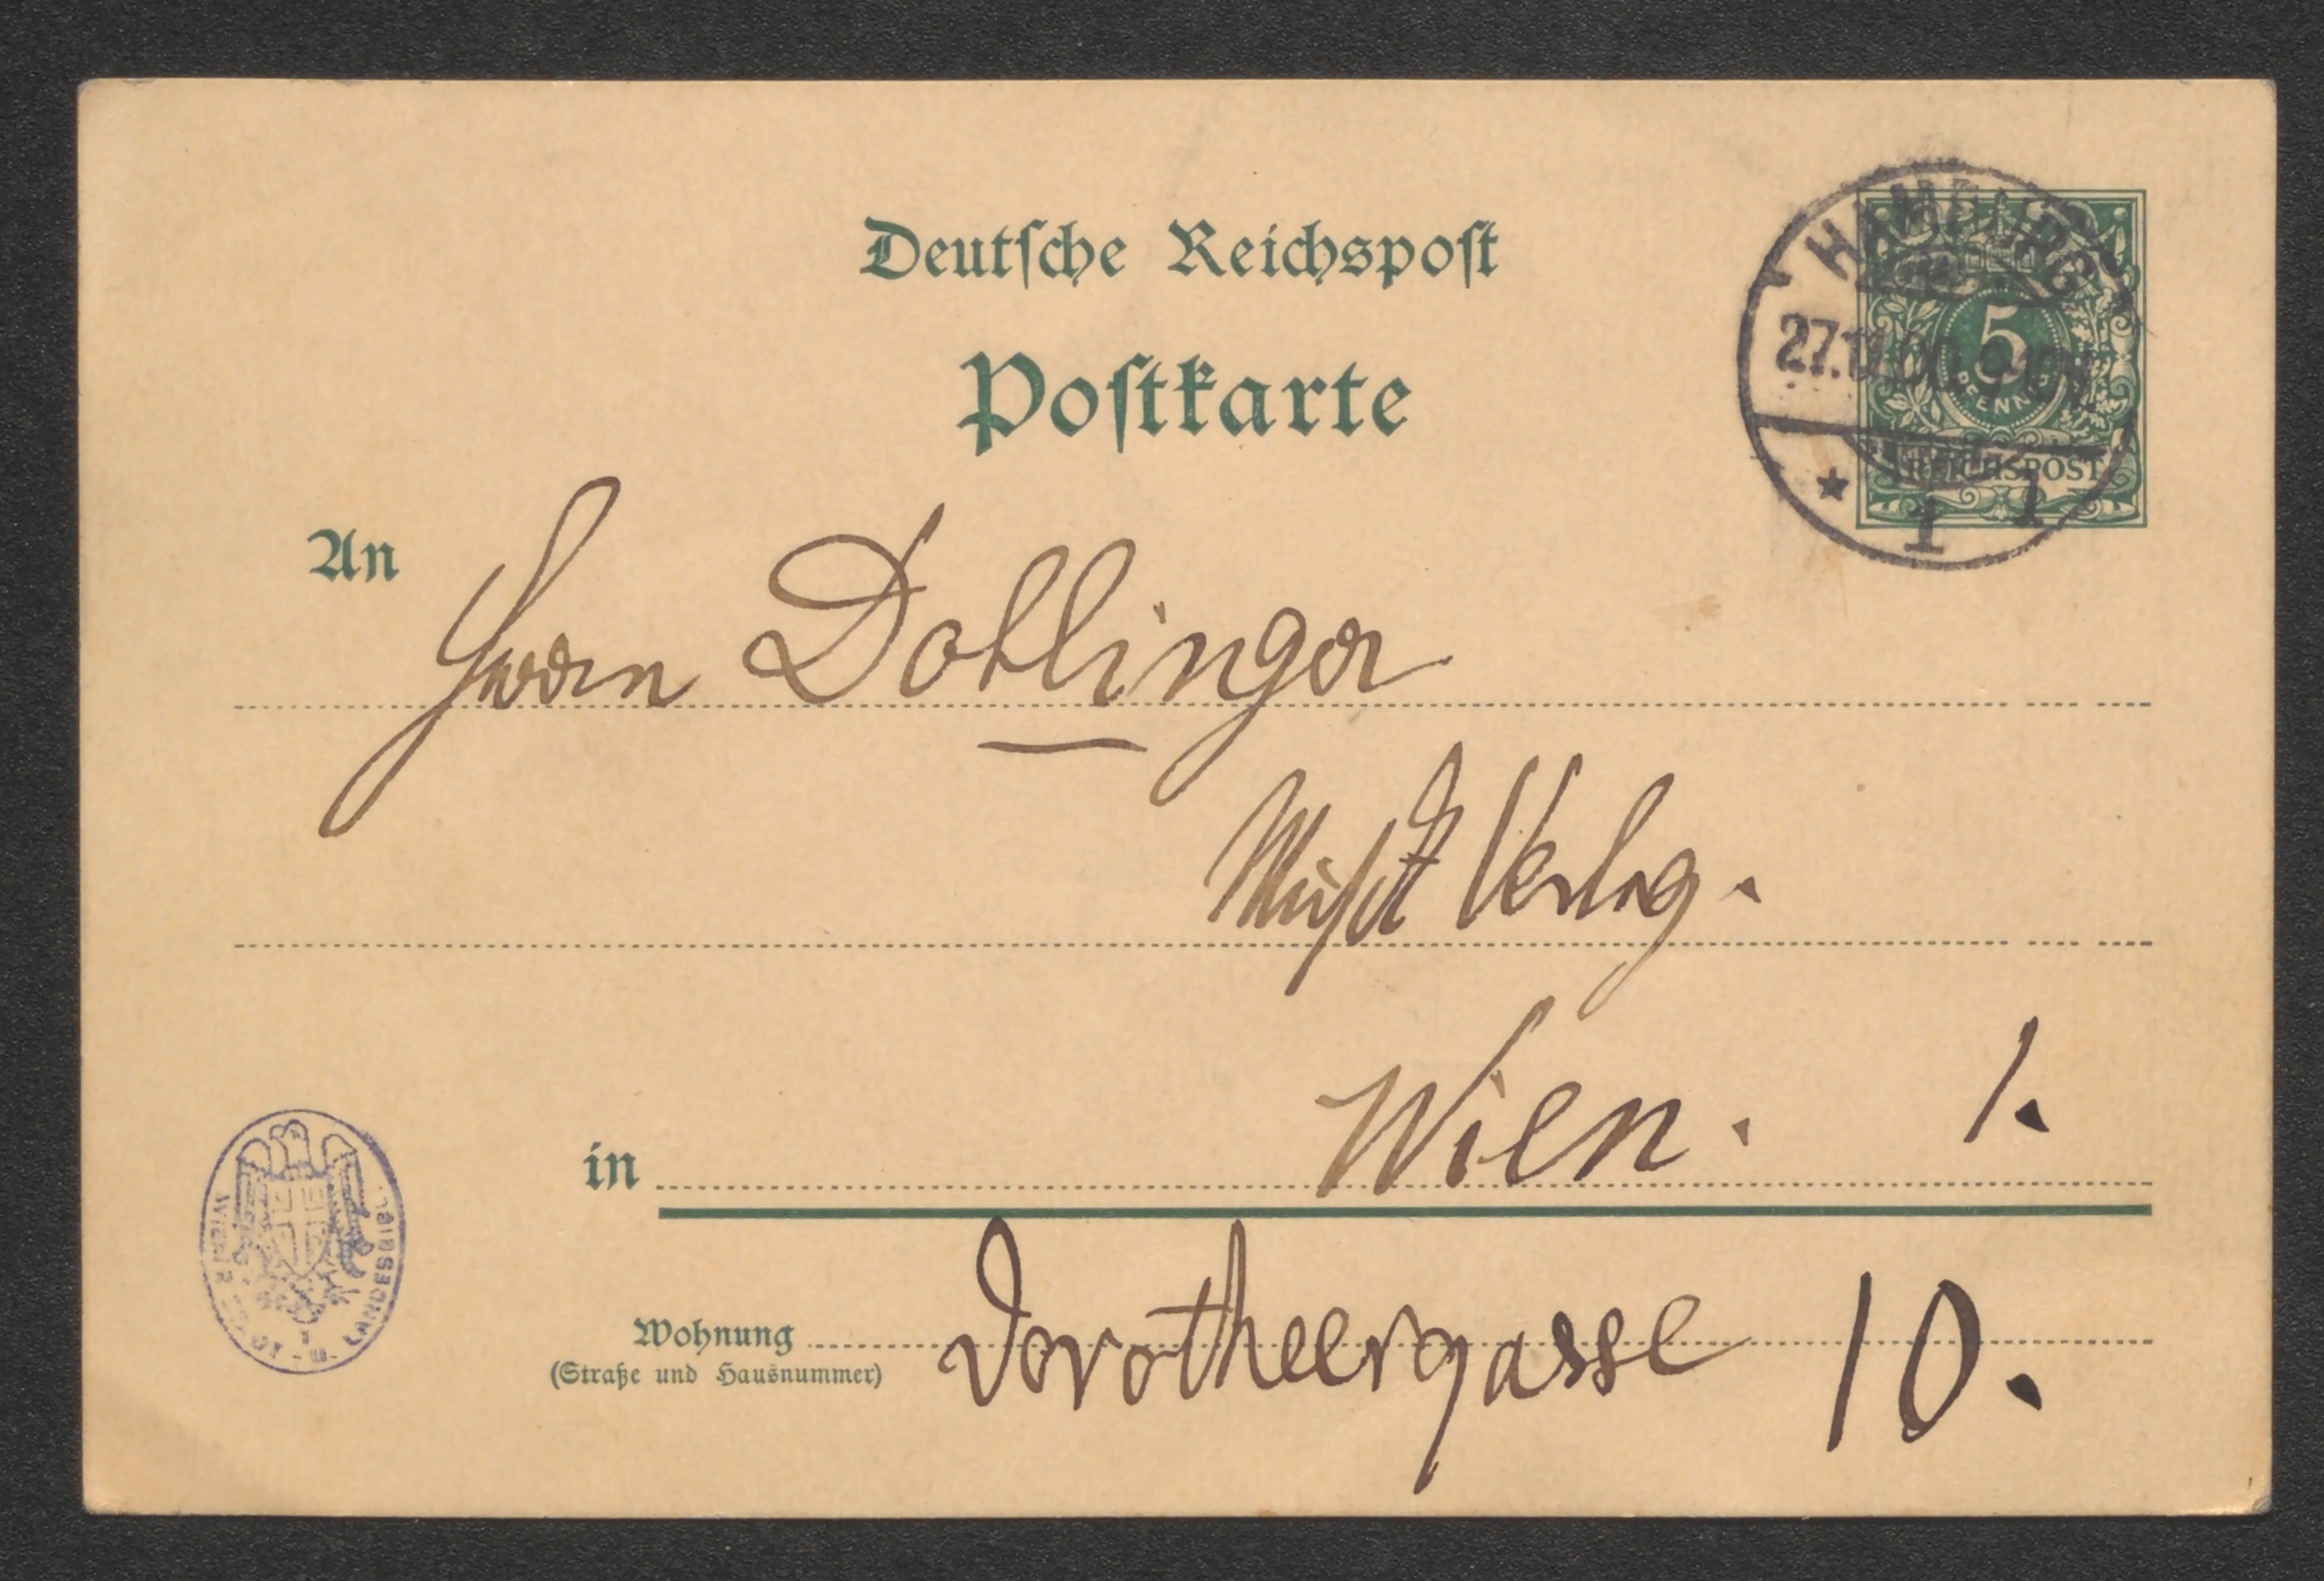 Deutsche Reichspost
Postkarte
HAMBURG
5
PFENNIG
REICHSPOST
* 1 1
An Herrn Doblinger
Musik Verlag.
in Wien. 1.
Wohnung Dorotheergasse 10.
(Straße und Hausnummer)
LANDESBIBL.